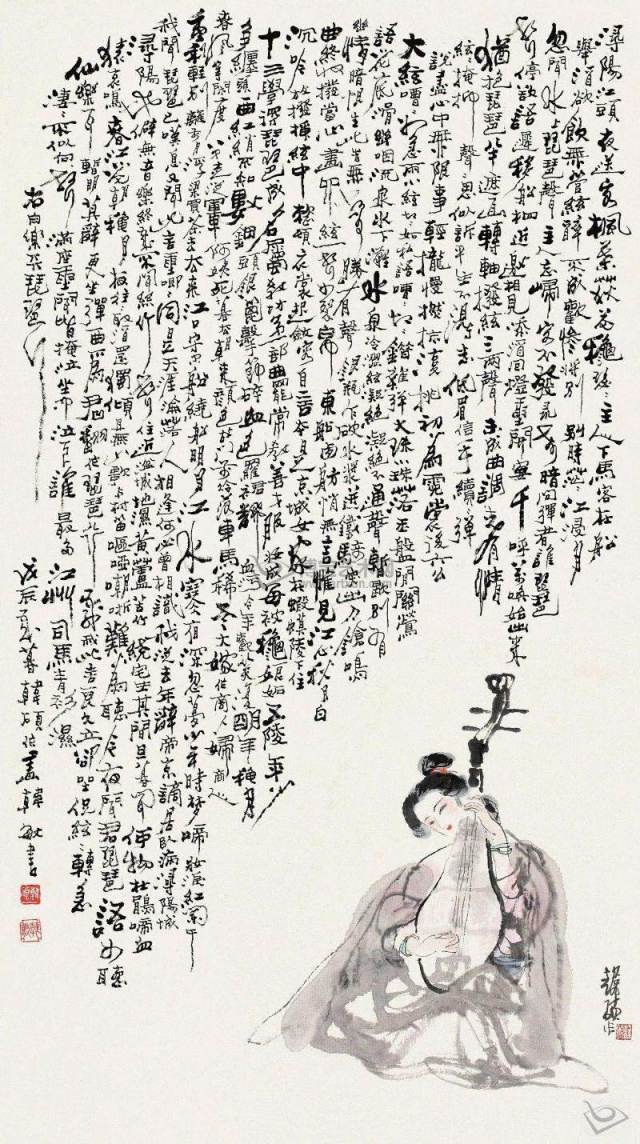 潯陽江頭夜送客楓葉荻花秋瑟〻主人下馬客在船
舉酒欲飲無管絃醉不成歡慘將別別時茫〻江浸月
忽聞水上琵琶聲主人忘歸客不發尋聲暗問彈者誰琵琶
聲停欲語遲移船相近邀相見添酒回燈重開宴千呼萬喚始出來
猶抱琵琶半遮面轉軸撥絃三兩聲未成曲調先有情
絃〻掩抑聲〻思似訴平生不得志低眉信手續〻彈
說盡心中無限事輕攏慢撚抹復挑初為霓裳後六幺
大絃嘈〻如急雨小絃切〻如私語嘈〻切〻錯雜彈大珠小珠落玉盤間關鶯
語花底滑幽咽泉流水下灘水泉冷澀絃凝絕凝絕不通聲暫歇別有
幽情暗恨生此時無聲勝有聲銀瓶乍破水漿迸鐵騎突出刀鎗鳴
曲終收撥當心畫四絃一聲如裂帛東船西舫悄無言惟見江心秋月白
沉吟放撥插絃中整頓衣裳起斂容自言本是京城女家在蝦蟆陵下住
十三學得琵琶成名屬教坊第一部曲罷常教善才服妝成每被秋娘妬五陵年少
爭纏頭一曲紅綃不知數鈿頭銀篦擊節碎血色羅裙翻酒污今年歡笑復明年秋月
春風等閒度弟走從軍阿姨死暮去朝來顏色故門前冷落車馬稀老大嫁作商人婦商人
重利輕別離前月浮梁買茶去去來江口守空船繞船明月江水寒夜深忽夢少年時夢啼妝淚紅闌干
我聞琵琶已嘆息又聞此語重唧〻同是天涯淪落人相逢何必曾相識我從去年辭帝京謫居臥病潯陽城
潯陽地僻無音樂終歲不聞絲竹聲住近湓城地低濕黃蘆苦竹繞宅生其間旦暮聞何物杜鵑啼血
猿哀鳴春江花朝秋月夜往往取酒還獨傾豈無山歌與村笛嘔啞嘲哳難為聽今夜聞君琵琶語如聽
仙樂耳暫明莫辭更坐彈一曲為君翻作琵琶行感我此言良久立卻坐促絃〻轉急
淒〻不似向前聲滿座重聞皆掩泣座中泣下誰最多江州司馬青衫濕
右白樂天琵琶行
戊辰歲暮韓碩作畫韓敏書
韓碩作